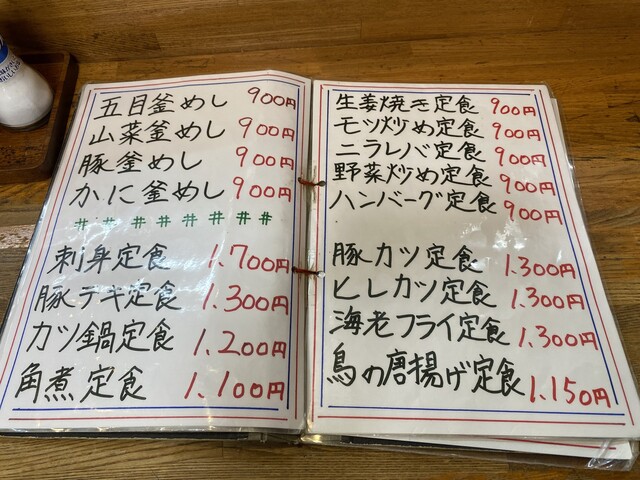 五目釜めし 900円
山菜釜めし 900円
豚釜めし 900円
かに釜めし 900円
########
刺身定食 1.700円
豚テキ定食 1.300円
カツ鍋定食 1.200円
角煮定食 1.100円
生姜焼き定食 900円
モツ炒め定食 900円
ニラレバ定食 900円
野菜炒め定食 900円
ハンバーグ定食 900円
豚カツ定食 1.300円
ヒレカツ定食 1.300円
海老フライ定食 1.300円
鳥の唐揚げ定食 1.150円